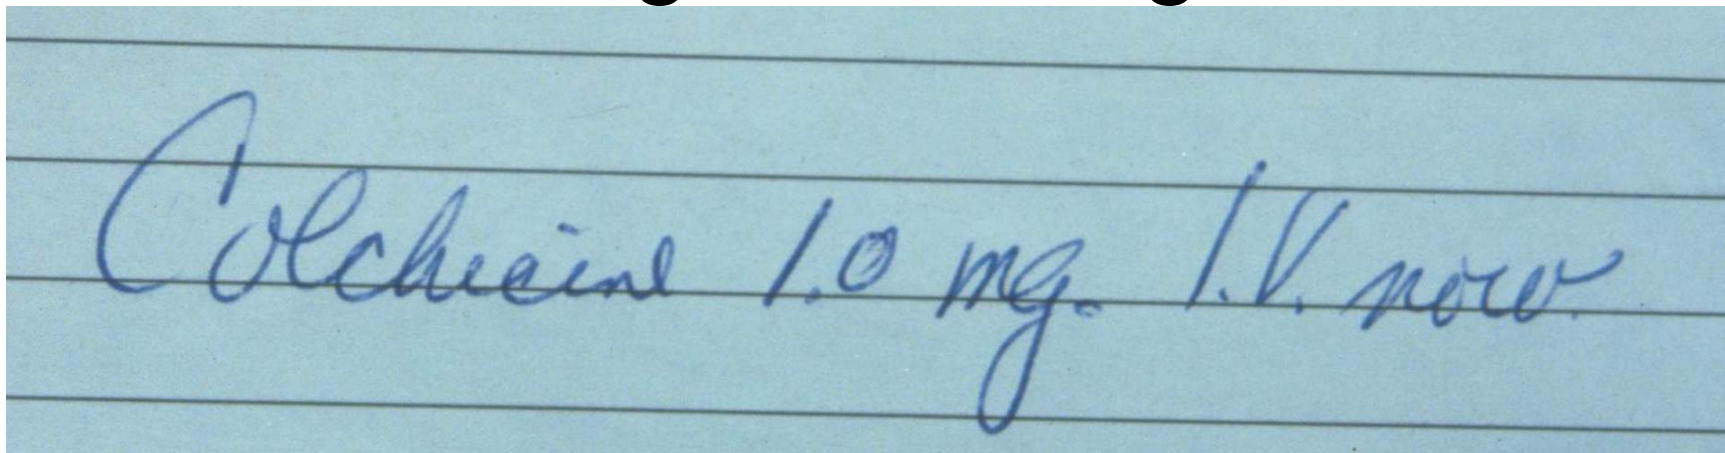 Colchicine 1.0 mg. I.V. now.